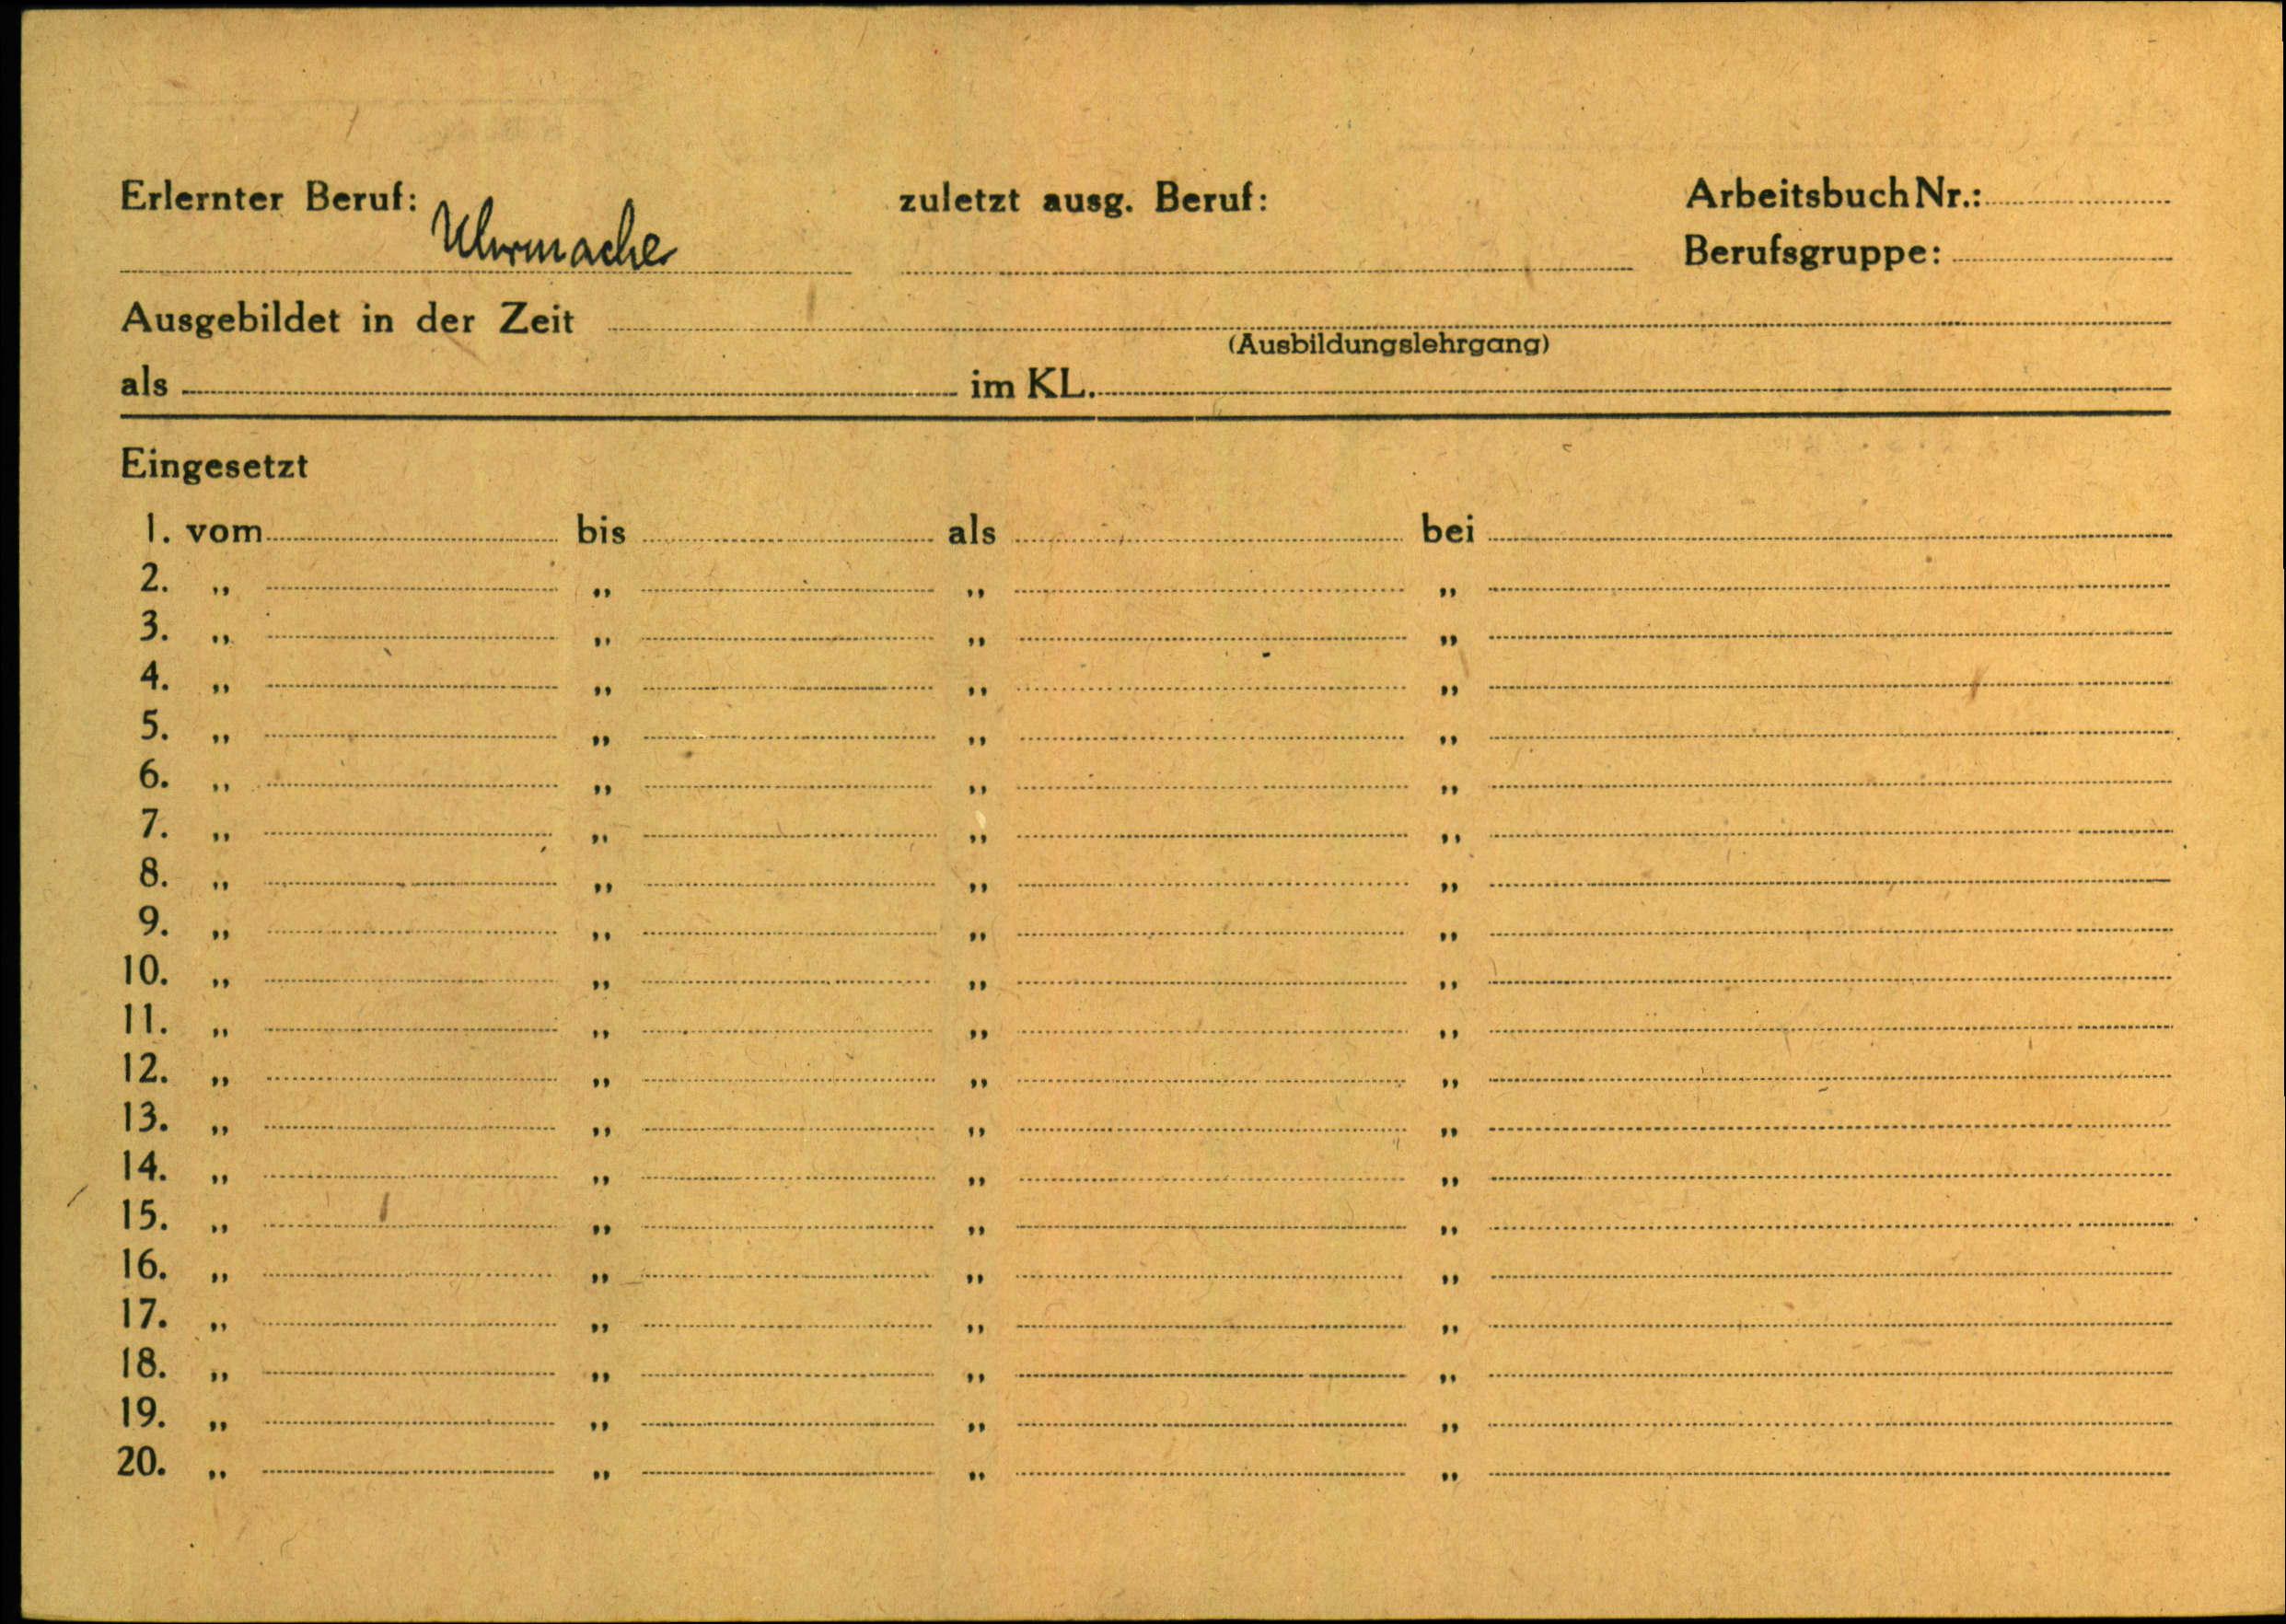 Erlernter Beruf: Uhrmacher zuletzt ausg. Beruf: Arbeitsbuch Nr.:
Berufsgruppe:
Ausgebildet in der Zeit
(Ausbildungslehrgang)
als im KL.
Eingesetzt
1. vom bis als bei
2. „ „ „ „
3. „ „ „ „
4. „ „ „ „
5. „ „ „ „
6. „ „ „ „
7. „ „ „ „
8. „ „ „ „
9. „ „ „ „
10. „ „ „ „
11. „ „ „ „
12. „ „ „ „
13. „ „ „ „
14. „ „ „ „
15. „ „ „ „
16. „ „ „ „
17. „ „ „ „
18. „ „ „ „
19. „ „ „ „
20. „ „ „ „